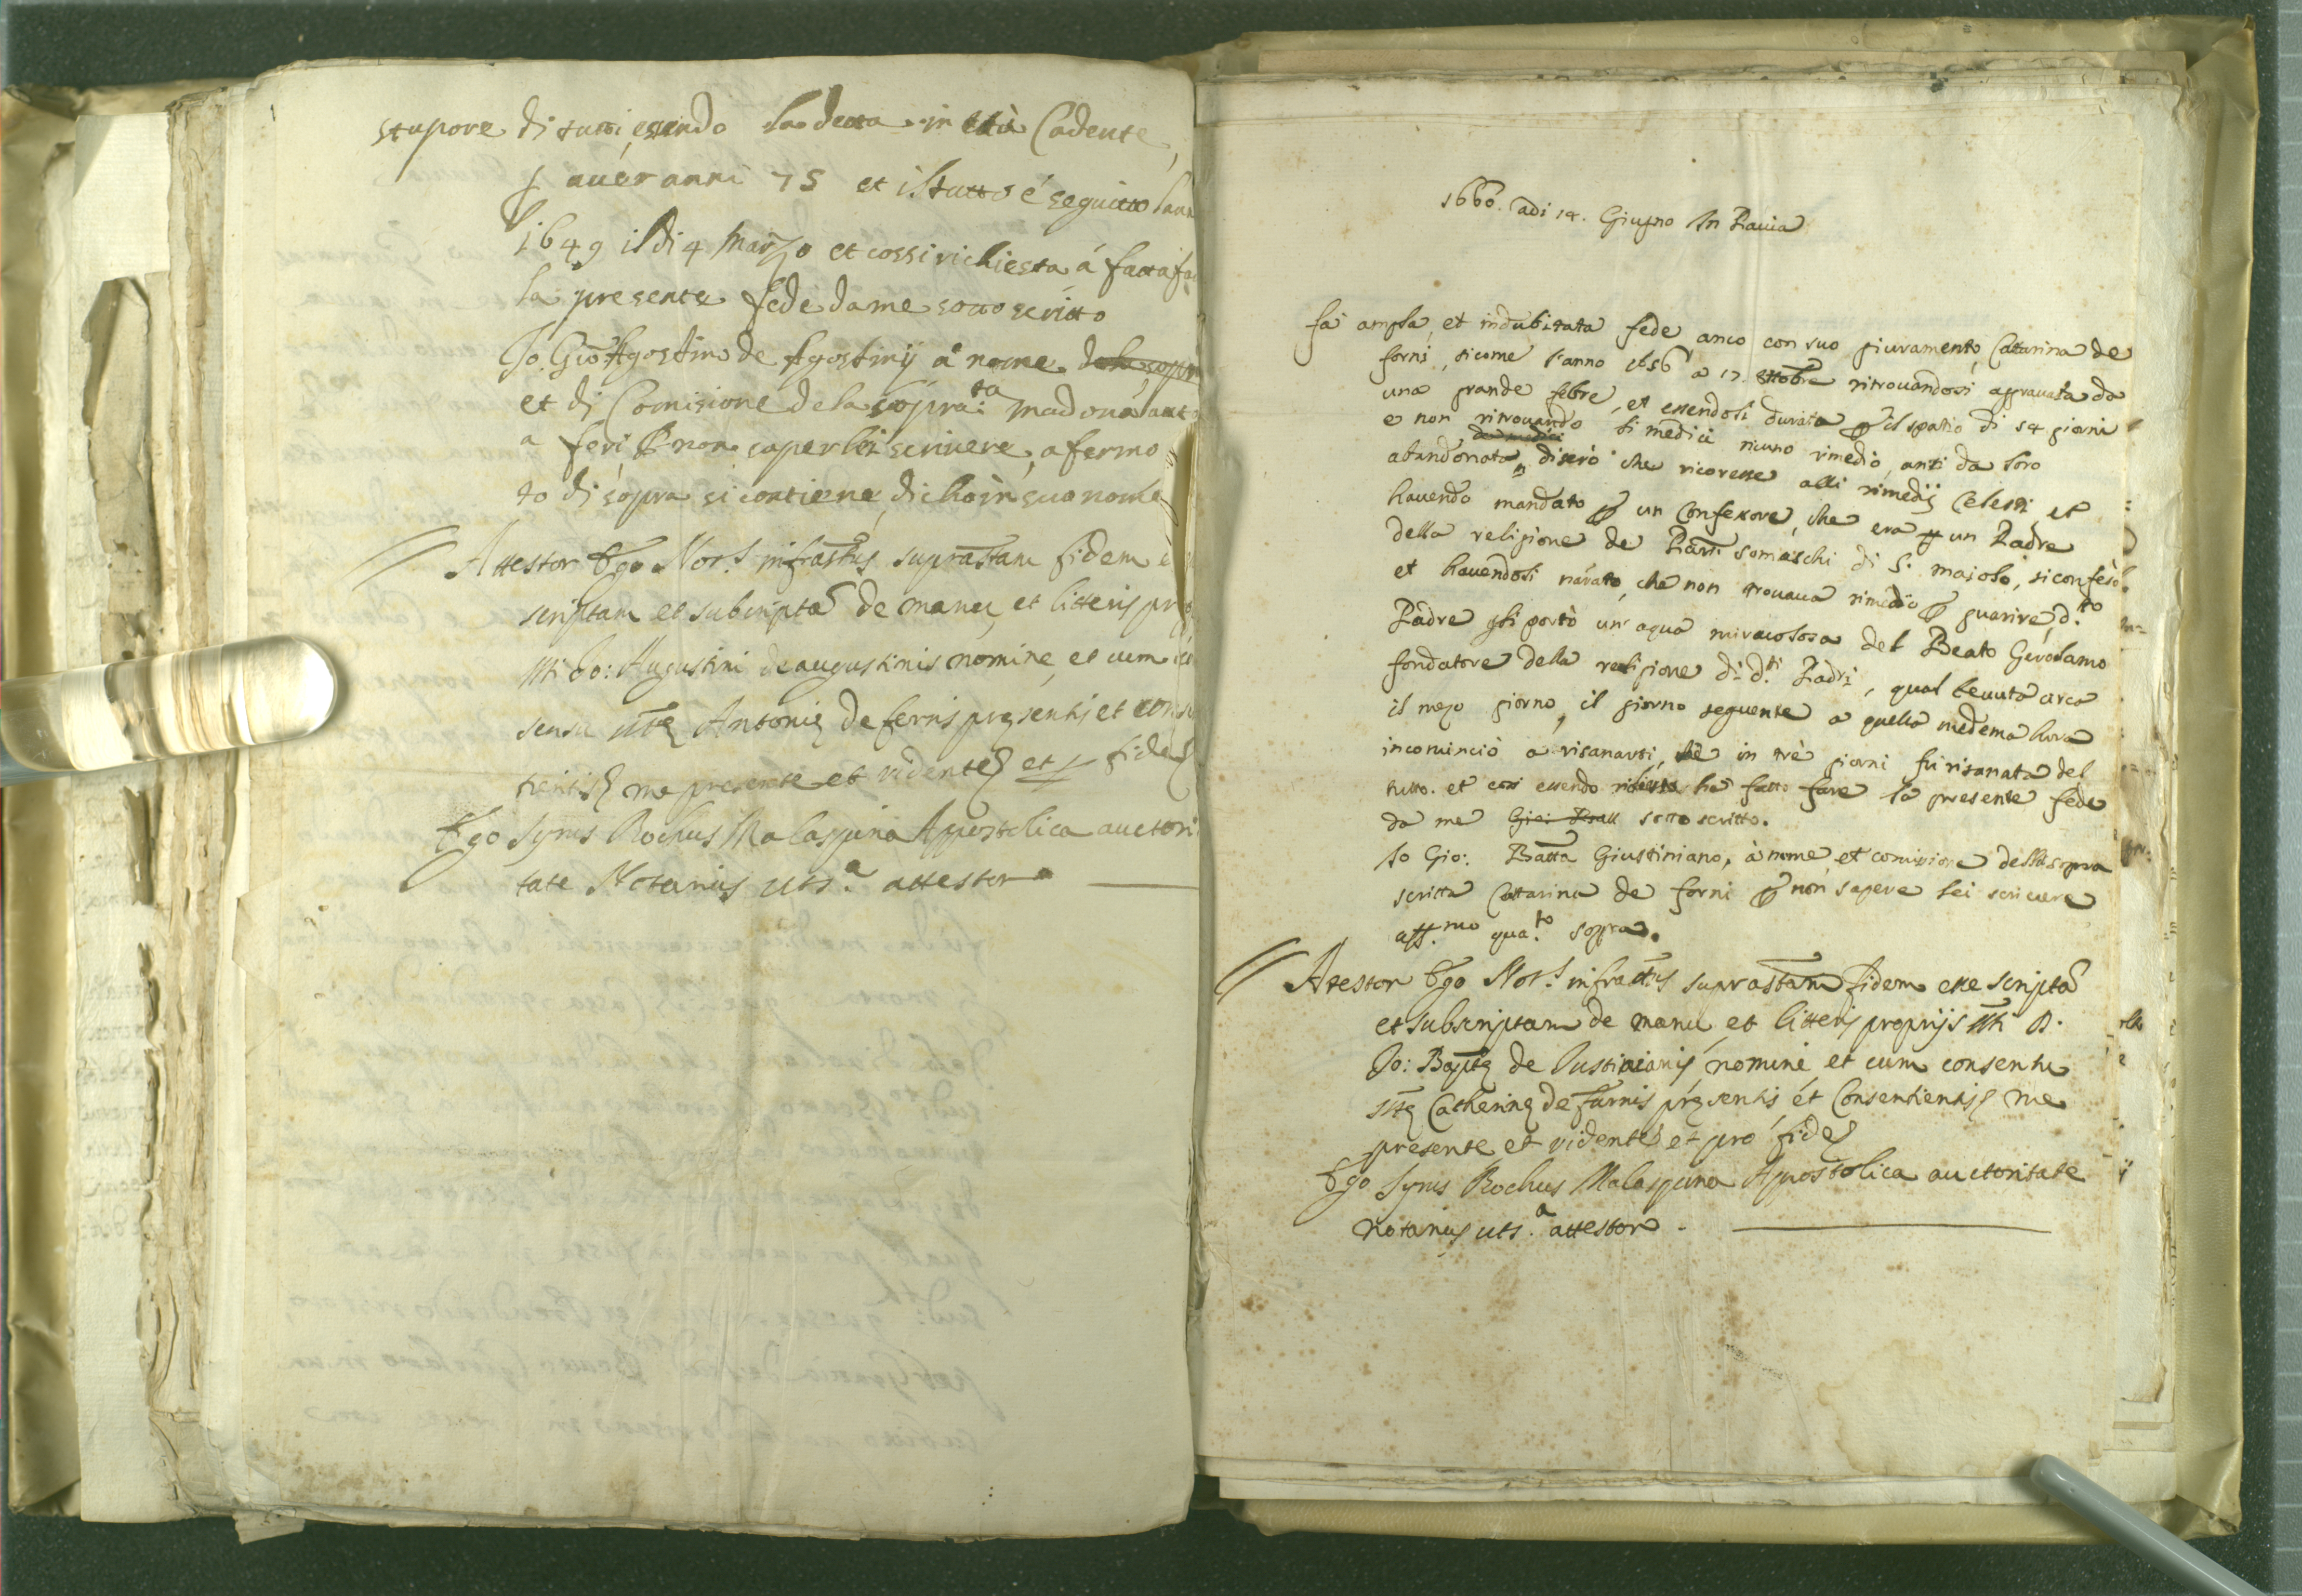 stupore di tutti, essendo la detta in età Cadente,
p aver anni 75 et il tutto é seguitto lann
1649 il di 4 Marzo et cossi richiesta á fatta fa
la presente fede da me sotto scritto
Io Gio Agostino de Agostinij a nome dela sopr
et di Comisione dela sopra:ta madona ant
a feri P non saper lei scrivere, afermo
to di sopra si contiene, dicho in suo nome
Attestor Ego Not.s infrastus suprastam fidem e
scriptam et subscriptã de manu, et litteris pr
sti Jo: Augustini de augustinis nomine, et cum
sensu stę Antonię de fernis pręsentis et cons
tientis me presente et vidente et p fide
Ego Syrus Rochus Malaspina Appostolica auctori
tate Notarius uts.a attestor
1660. adi 14. Giugno In Pavia
fa ampla, et indubitata fede anco con suo giuramento, Cattarina de
forni, sicome l'anno 1656 a 17 ottobre ritrovandosi agravata da
una grande febre, et essendoli durata p il spatio di 54 giorni
e non ritrovando li medici niuno rimedio, anti da loro
da medici
abandonata, diserò che ricoresse alli rimedij Celesti et
havendo mandato p un Confessore, che era p un Padre
della religione de Padri somaschi di S. Majolo, si confesò
et havendosi narato, che non trovava rimedio p guarire, d.to
Padre gli portò un' aqua miracolosa del Beato Girolamo
fondatore della religione di d.ti Padri, qual bevuta circa
il mezo giorno, il giorno seguente a quella medema hora
incominciò a risanarsi, chè in trè giorni fu risanata del
tutto. et così essendo richiesta ha fatto fare la presente fede
da me Gio: Batt sotto scritto.
Io Gio: Batta Giustiniano, à nome, et comisione della sopra
scritta Cattarina de forni p non sapere lei scrivere
aff.mo qua.to sopra.
Atestor Ego Not.s infrastus suprastam fidem esse scriptã
et subscriptam de manu, et litteris proprijs sti D.
Jo: Baptę de Justinianis, nomine, et cum consensu
stę Catherinę de furnis pręsentis et Consentientis me
presente et vidente et pro fide
Ego Syrus Rochus Malaspina Apostolica auctoritate
notarius uts.a attestor